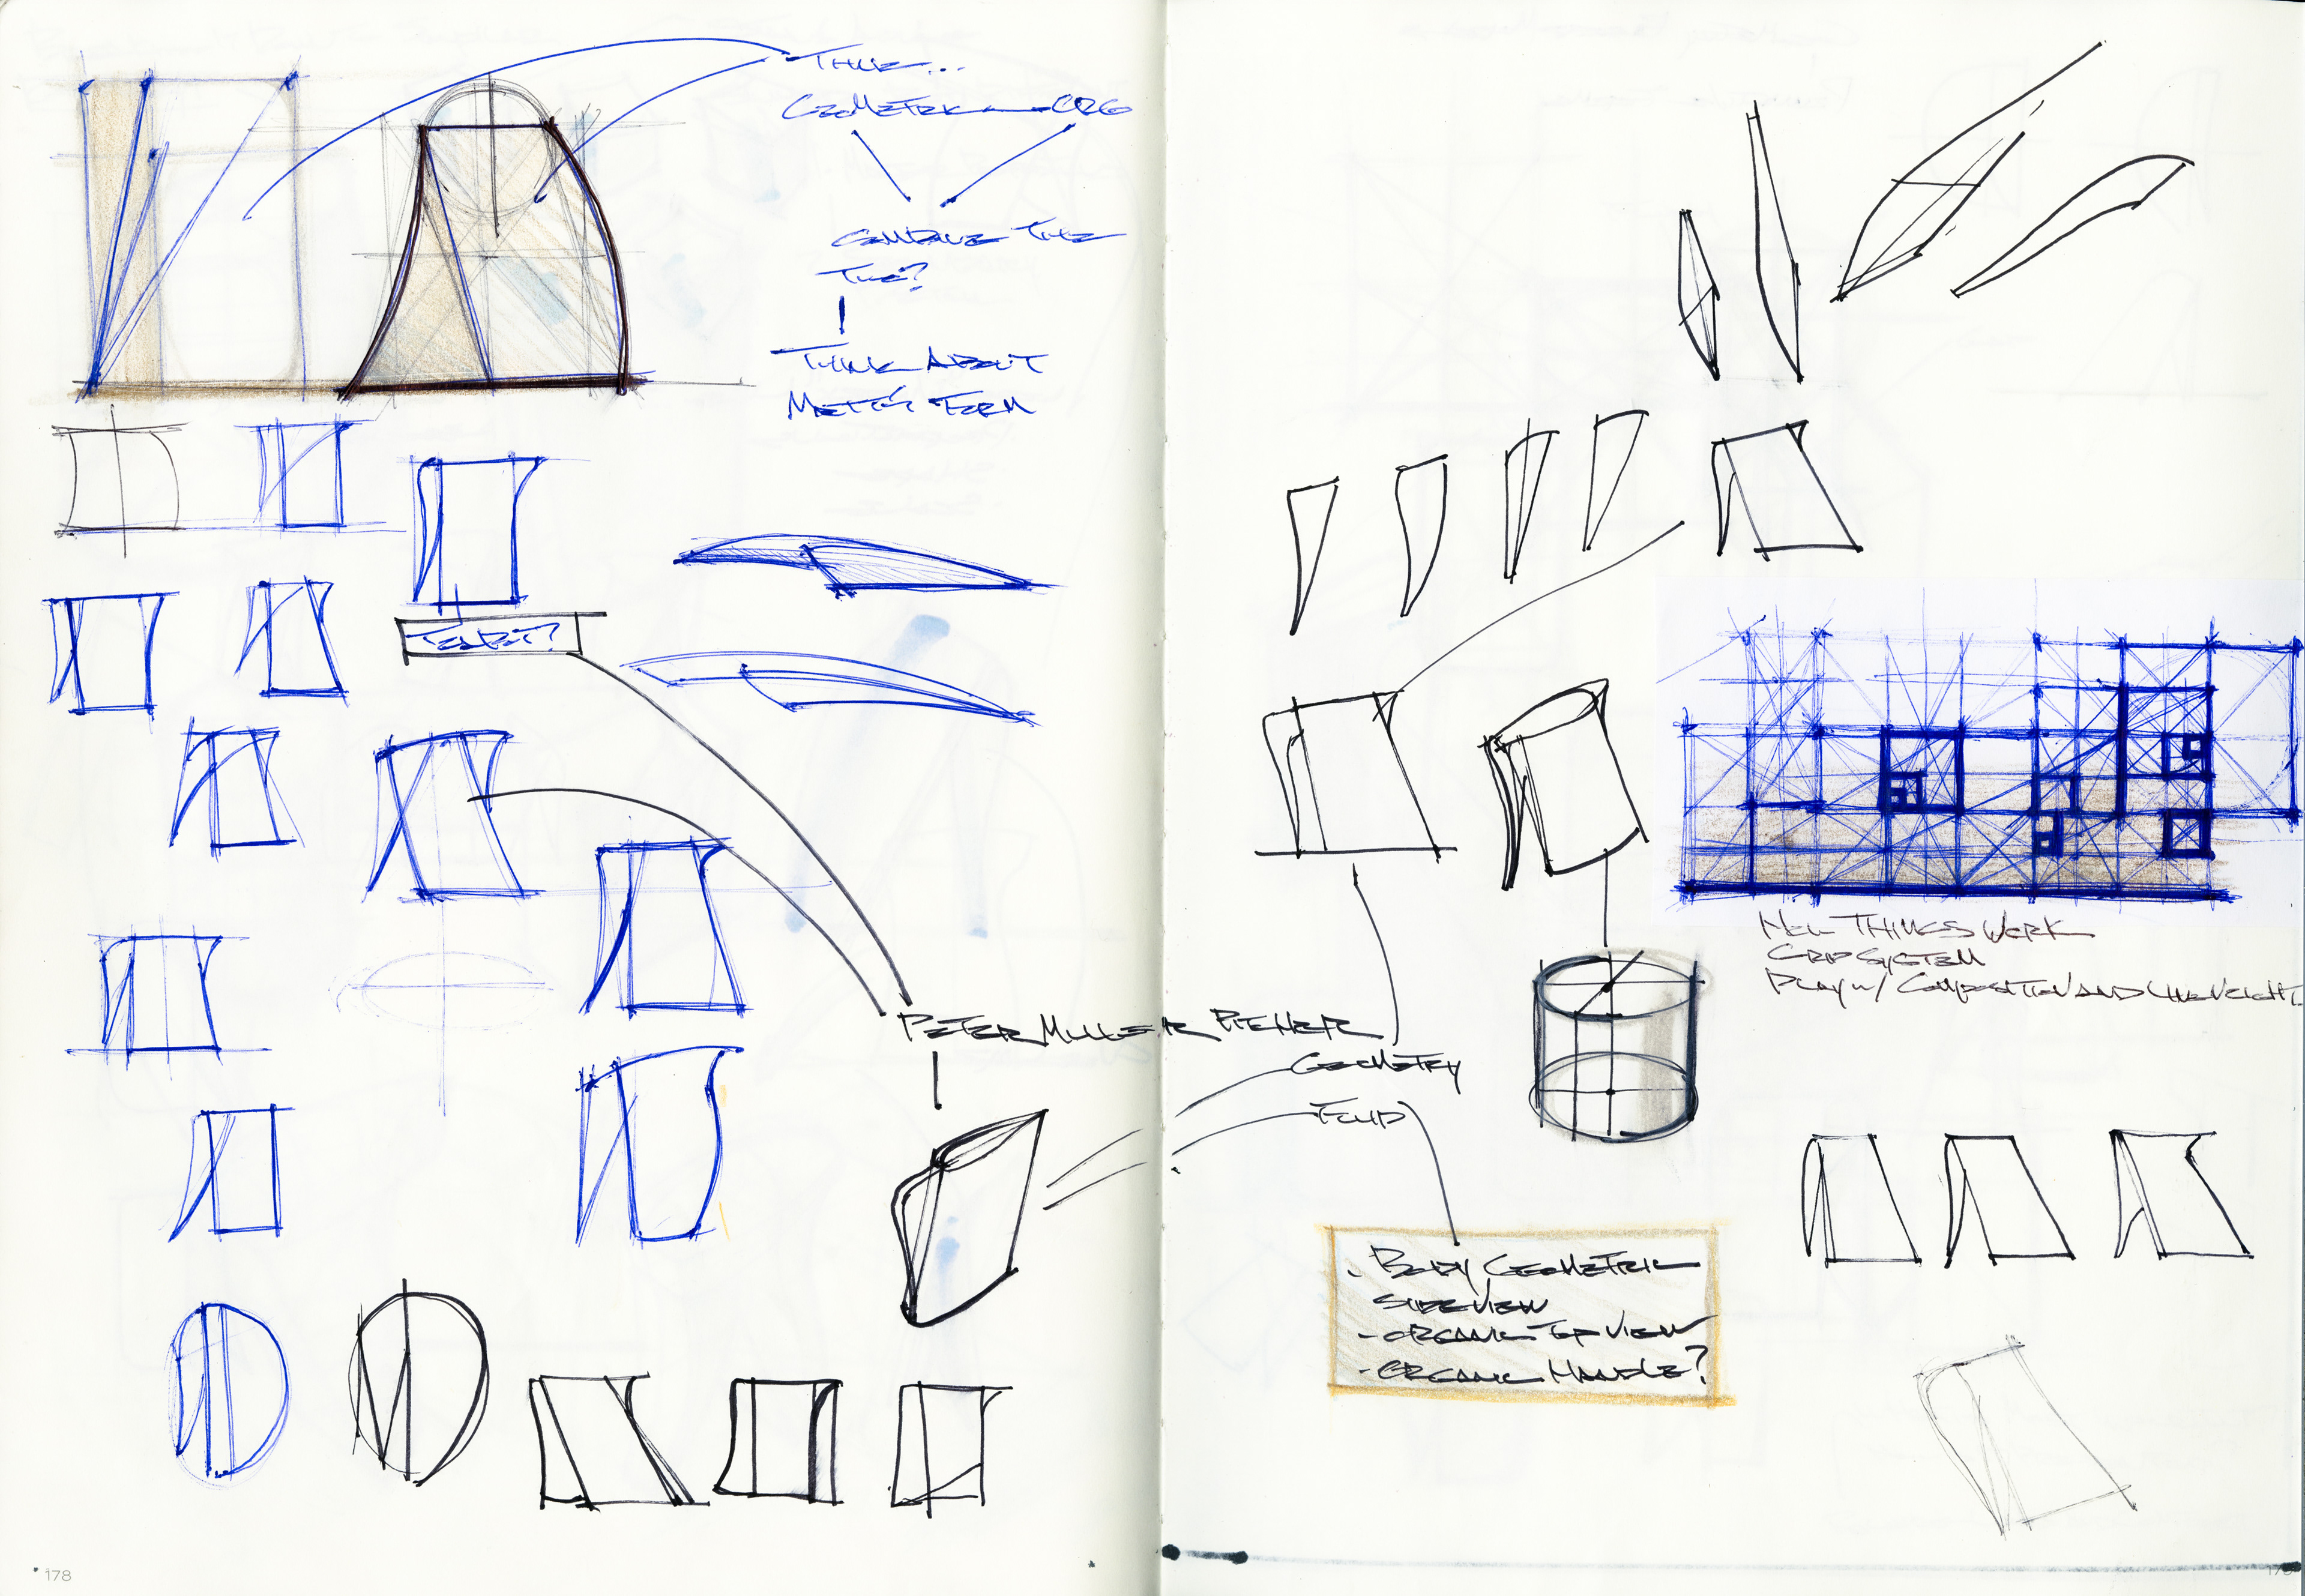 THINK...
GEOMETRIC — ORG
COMBINE THE
TWO?
THINK ABOUT
METTE'S FORM
TEAPOT?
PETER MULLER PITCHER
GEOMETRY
FLUID
NEW THINGS WORK
GRID SYSTEM
PLAY W/ COMPOSITION AND LINEWEIGHT
- BODY GEOMETRIC
SIDEVIEW
- ORGANIC TOP VIEW
- ORGANIC HANDLE?
178